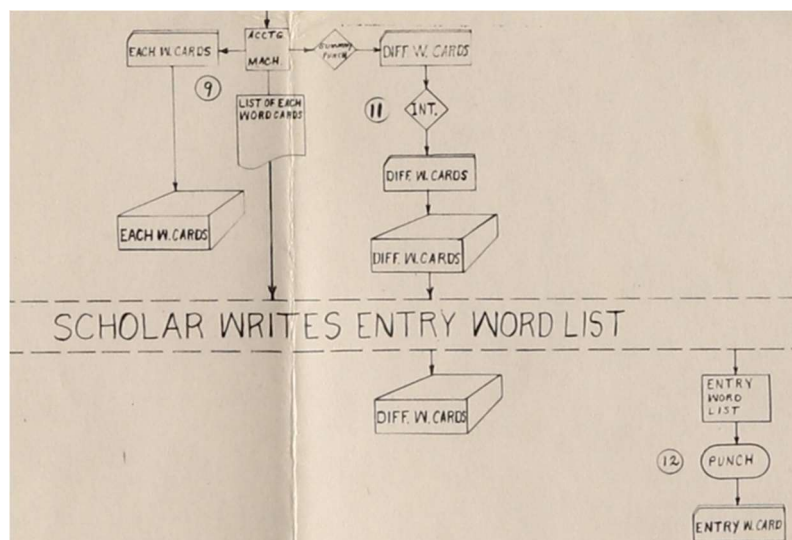 EACH W. CARDS
ACCTG
MACH.
SUMMARY
PUNCH
DIFF W. CARDS
9
LIST OF EACH
WORD CARDS
11
INT.
DIFF. W. CARDS
EACH W. CARDS
DIFF. W. CARDS
SCHOLAR WRITES ENTRY WORD LIST
DIFF. W. CARDS
ENTRY
WORD
LIST
12
PUNCH
ENTRY W. CARD